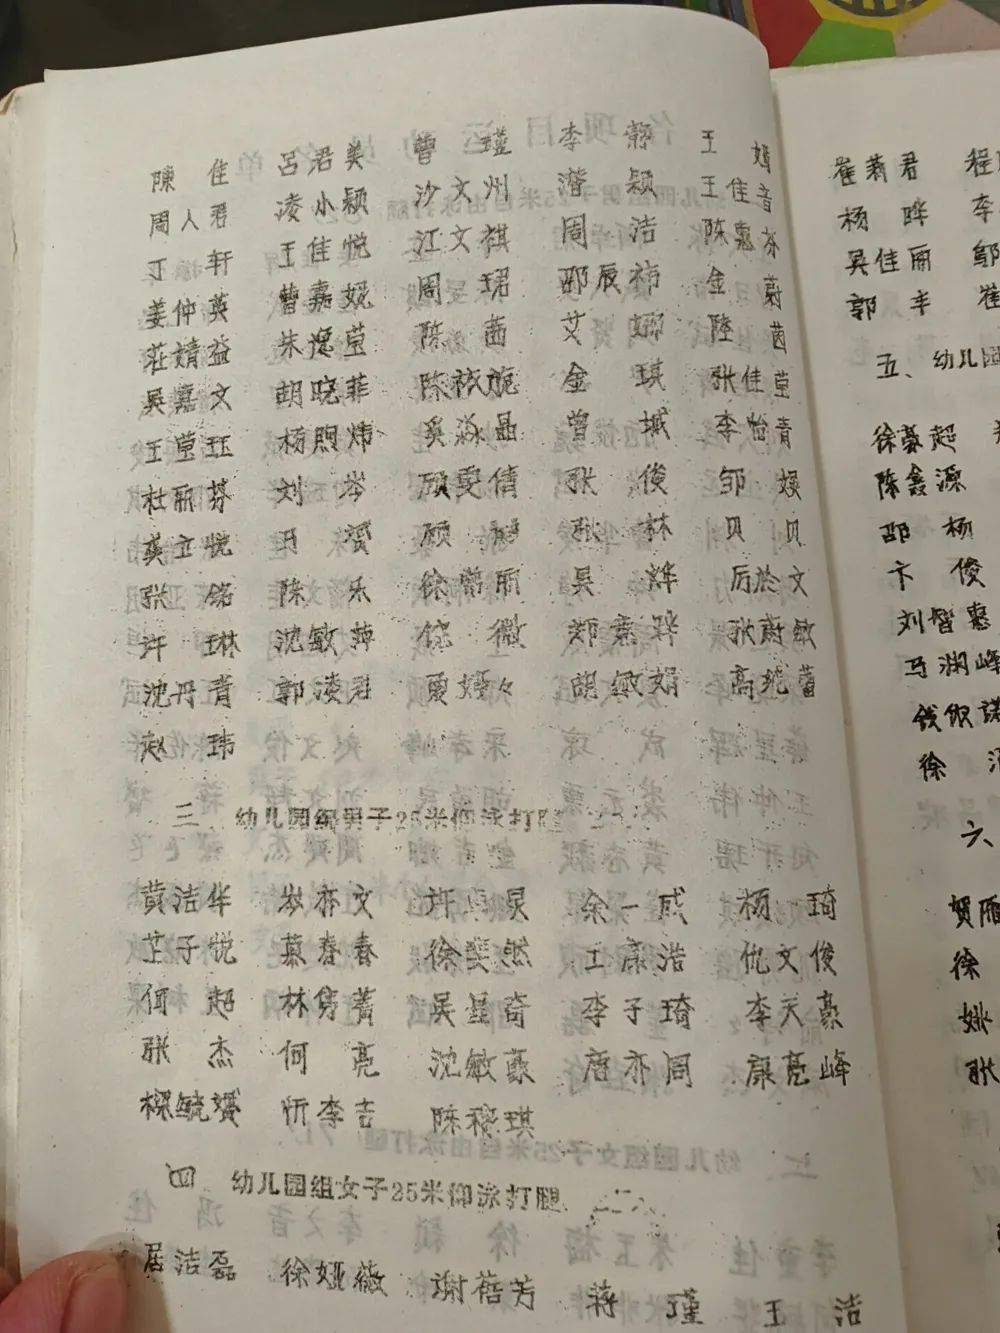 陳 佳 吕君美 曹 瑾 李 静 王 嫣
周人君 凌小颖 沙文州 潜 颖 王佳音
丁 轩 王佳悦 江文祺 周 洁 陈惠芬
姜仲英 曹嘉媛 周 珺 邵辰祎 金 蔚
莊婧益 朱逸莹 陈 茜 艾 娜 陸 茵
吴嘉文 胡晓菲 陈祯旎 金 琪 张佳莹
王莹珏 杨煦炜 奚淼晶 曾 城 李怡青
杜丽芬 刘 岑 顾雯倩 张 俊 邹 嫫
龚立悦 田 赟 顾 张 林 贝 贝
张 铭 陈 乐 徐蕾丽 吴 烨 厉於文
许 琳 沈敏萍 倪 微 郑熹骅 张蔚敏
沈丹青 郭凌君 夏婷々 胡敏娟 高婉蕾
赵 玮
三、幼儿园组男子25米仰泳打腿
黄洁华 岁亦文 许卓昊 余一威 杨 琦
芷子悦 慕春春 徐斐然 王康浩 仇文俊
何 超 林隽菁 吴星奇 李子琦 李天豪
张 杰 何 亮 沈敏豪 唐亦周 康亮峰
樑毓赟 忻李吉 陈稼琪
四 幼儿园组女子25米仰泳打腿
居洁磊 徐娅薇 谢蓓芳 蒋 瑾 王 洁
崔莉君 程
杨 晔 李
吴佳丽 邬
郭 丰 崔
五、幼儿园
徐豪超
陈鑫源
邵 杨
卞 俊
刘智惠
马润峰
钱佩諾
徐
六、
贺雁
徐
姚
张